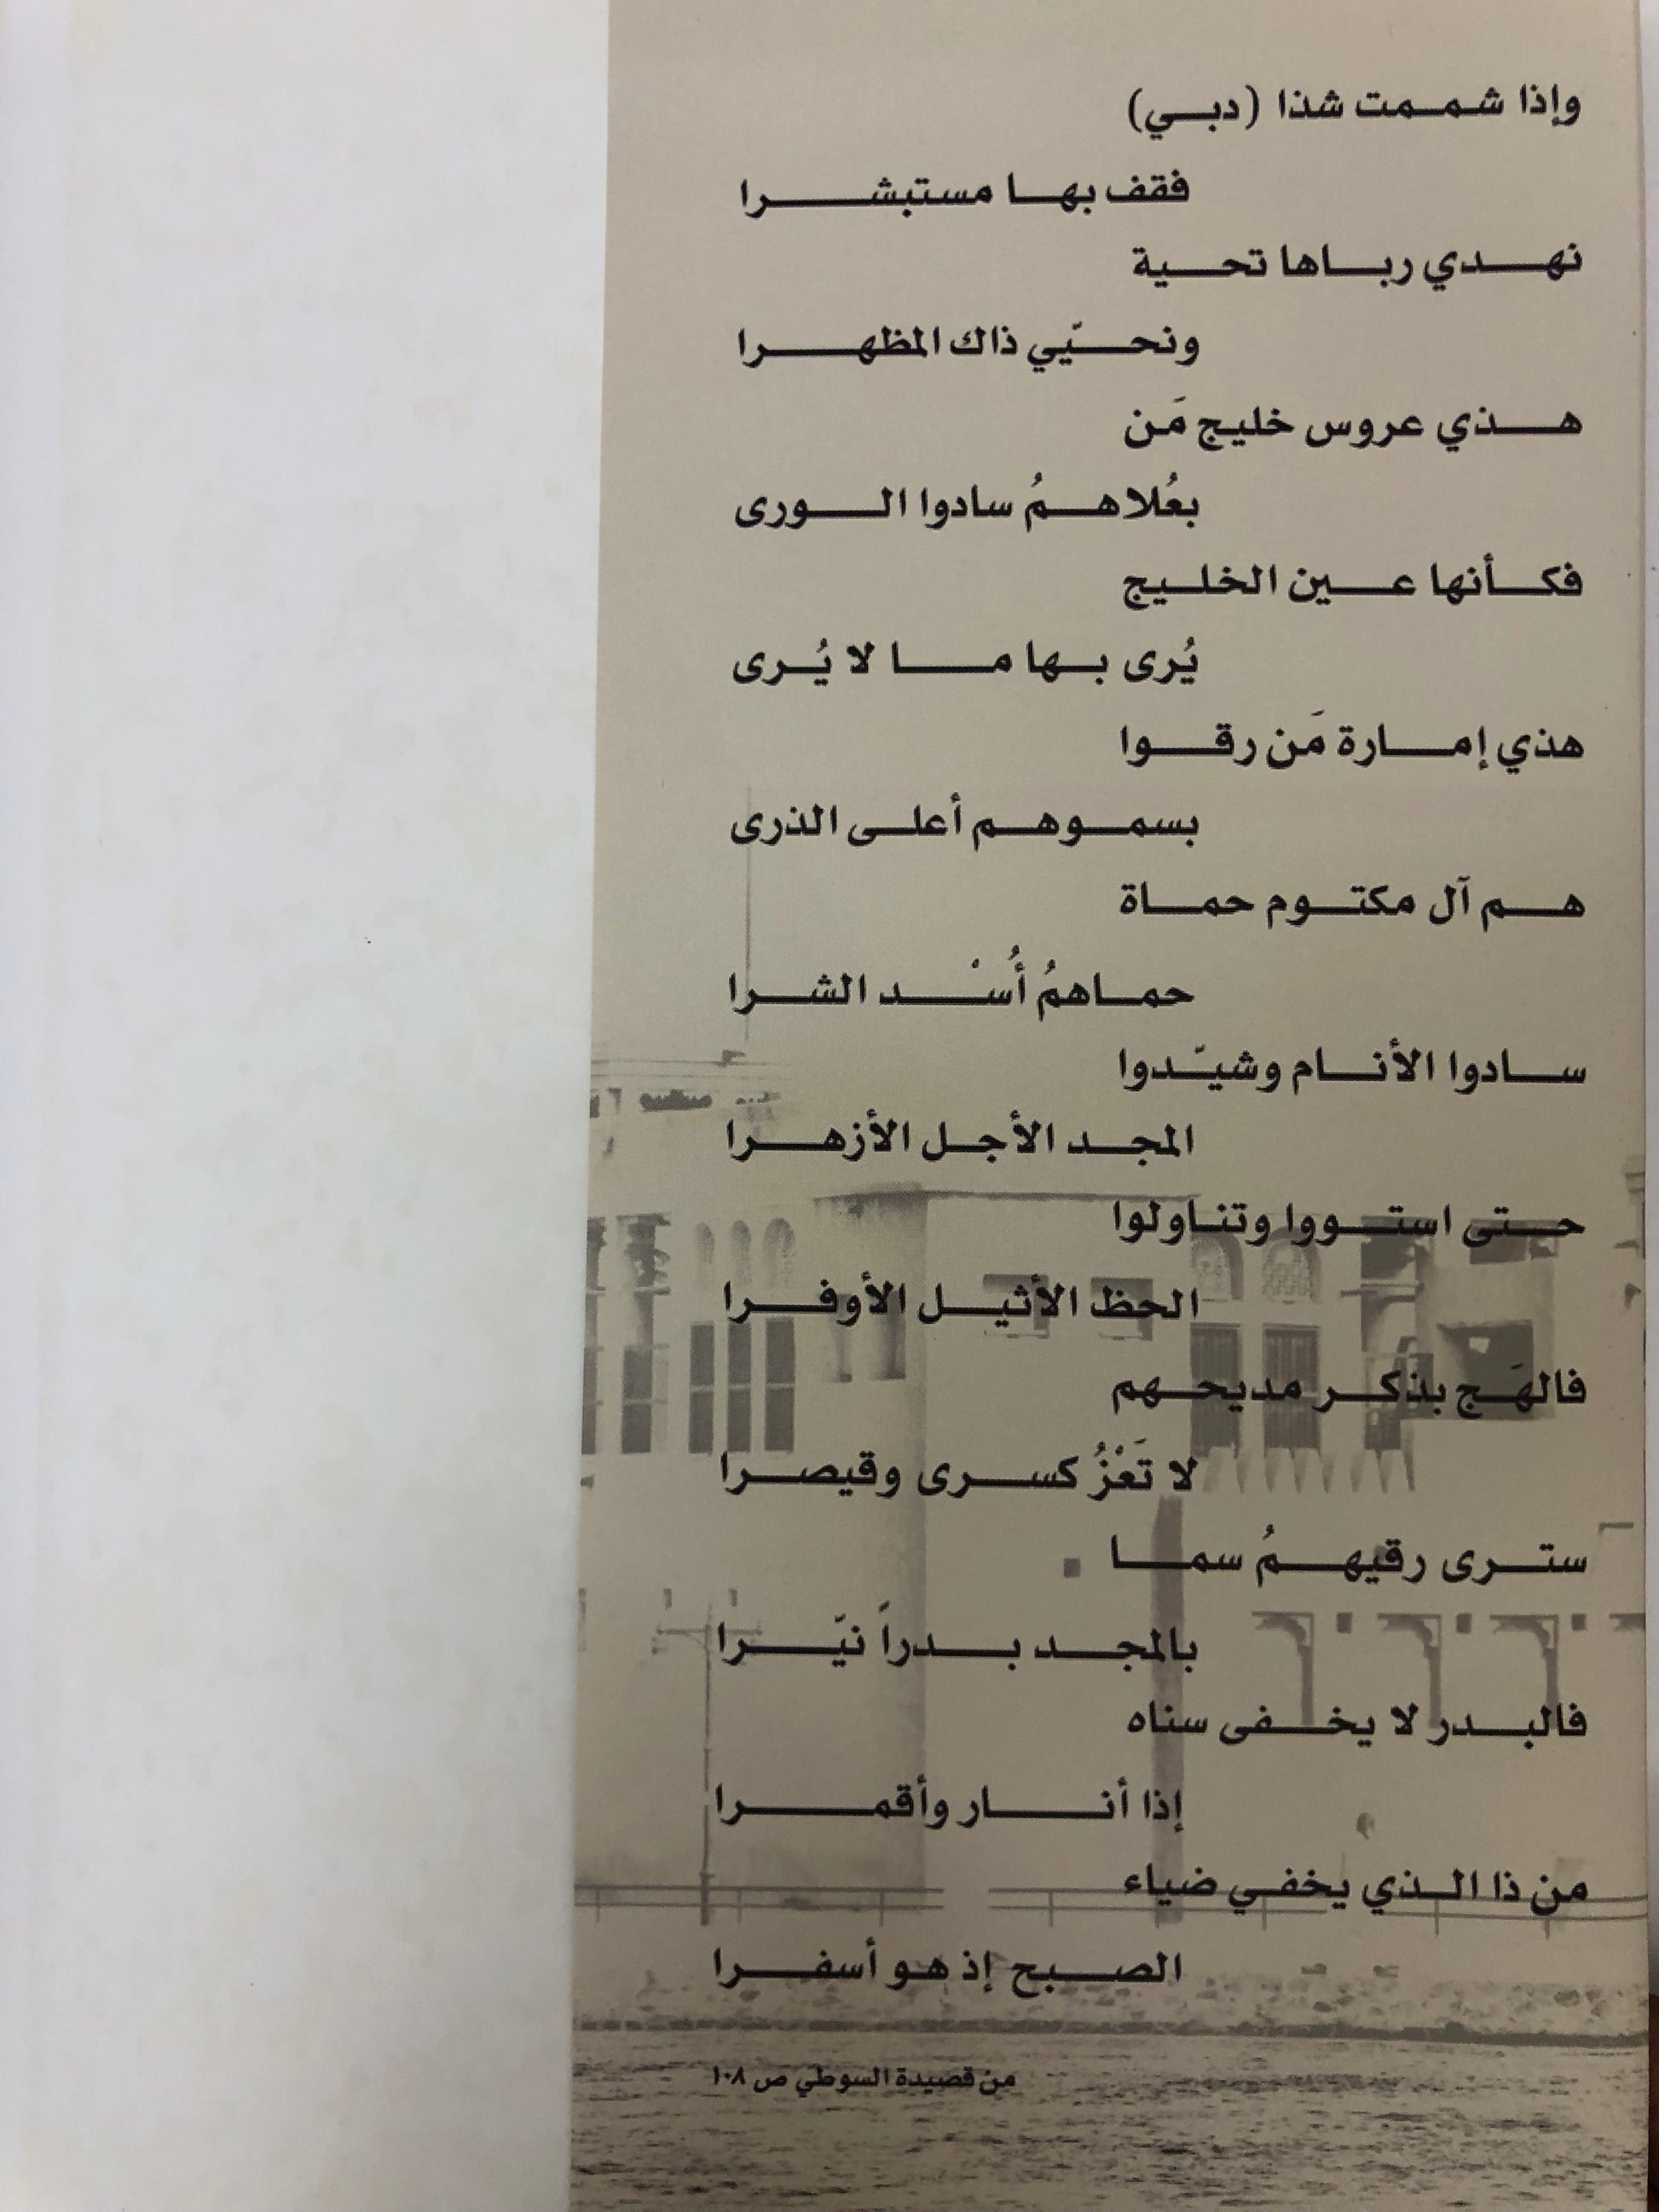 وإذا شممت شذا (دبي)
فقف بها مستبشرا
نهدي رباها تحية
ونحيّي ذاك المظهرا
هذي عروس خليج مَن
بعُلاهمُ سادوا الورى
فكأنها عين الخليج
يُرى بها ما لا يُرى
هذي إمارة مَن رقوا
بسموهم أعلى الذرى
هم آل مكتوم حماة
حماهمُ أُسْد الشرا
سادوا الأنام وشيّدوا
المجد الأجل الأزهرا
حتى استووا وتناولوا
الحظ الأثيل الأوفرا
فالهَج بذكر مديحهم
لا تَعْزُ كسرى وقيصرا
سترى رقيهمُ سما
بالمجد بدراً نيّرا
فالبدر لا يخفى سناه
إذا أنار وأقمرا
من ذا الذي يخفي ضياء
الصبح إذ هو أسفرا
من قصيدة السوطي ص ١٠٨